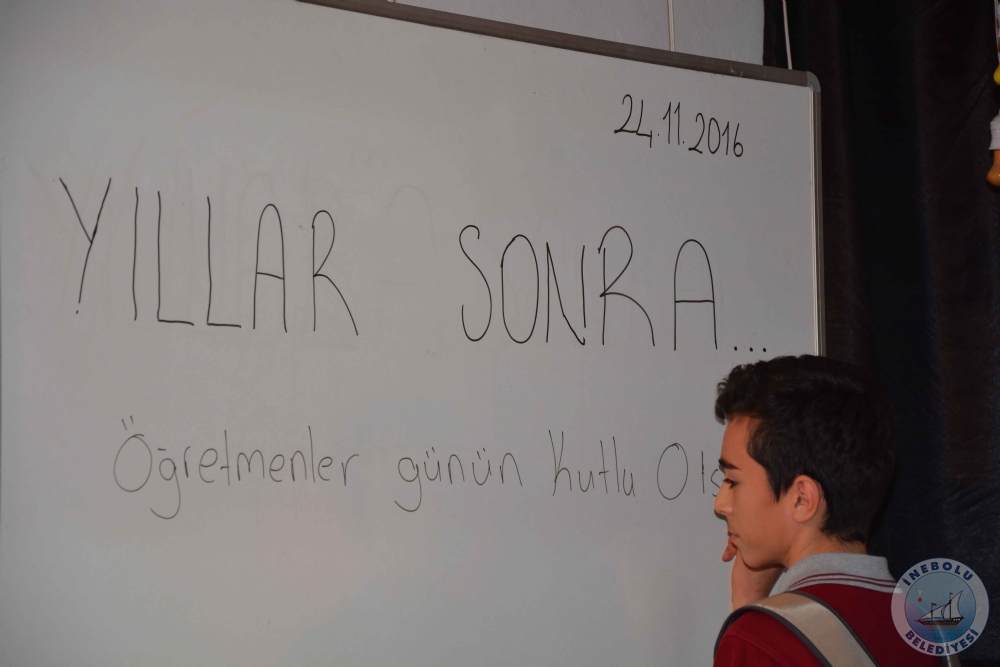 24.11.2016
YILLAR SONRA...
Öğretmenler günün Kutlu Ols
İNEBOLU
BELEDİYESİ